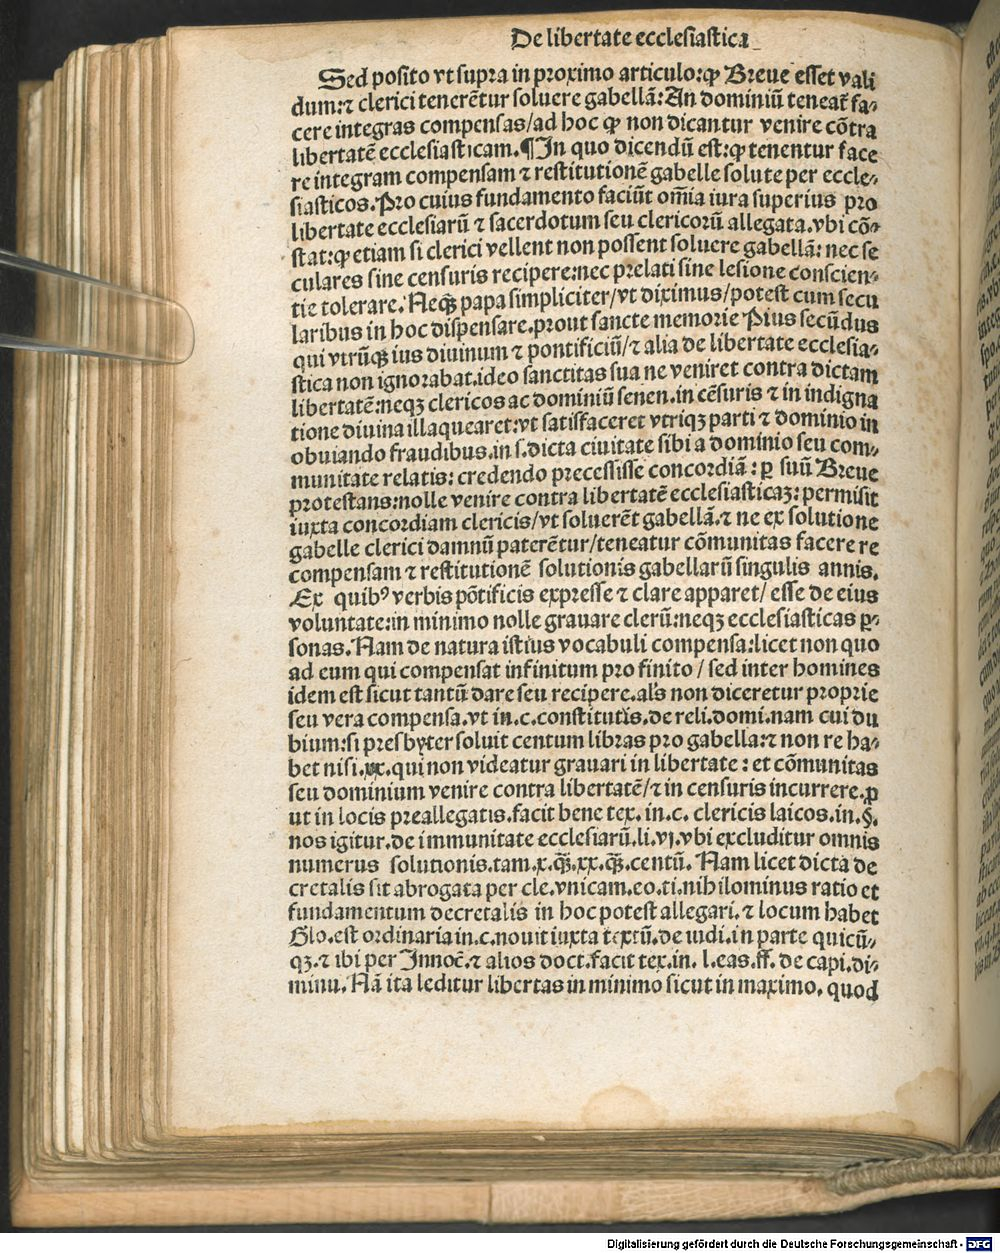 De libertate ecclesiastica
Sed posito vt supra in proximo articulo:ꝙ Breue esset vali
dum:⁊ clerici tenerētur soluere gabellā:An dominiū teneat᷑ fa⸗
cere integras compensas/ad hoc ꝙ non dicantur venire cōtra
libertatē ecclesiasticam.¶In quo dicendū est:ꝙ tenentur face
re integram compensam ⁊ restitutionē gabelle solute per eccle⸗
siasticos.Pro cuius fundamento faciūt om̄ia iura superius pro
libertate ecclesiarū ⁊ sacerdotum seu clericorū allegata.vbi cō⸗
stat:ꝙ etiam si clerici vellent non possent soluere gabellā: nec se
culares sine censuris recipere:nec prelati sine lesione conscien⸗
tie tolerare. Neqꝫ papa simpliciter/vt diximus/potest cum secu
laribus in hoc dispensare.prout sancte memorie Pius secūdus
qui vtrūqꝫ ius diuinum ⁊ pontificiū/⁊ alia de libertate ecclesia⸗
stica non ignorabat.ideo sanctitas sua ne veniret contra dictam
libertatē:neqꝫ clericos ac dominiū senen.in cēsuris ⁊ in indigna
tione diuina illaquearet:vt satisfaceret vtriqꝫ parti ⁊ dominio in
obuiando fraudibus.in s.dicta ciuitate sibi a dominio seu com⸗
munitate relatis: credendo precessisse concordiā: ꝑ suū Breue
protestans:nolle venire contra libertatē ecclesiasticaꝫ: permisit
iuxta concordiam clericis/vt soluerēt gabellā.⁊ ne ex solutione
gabelle clerici damnū paterētur/teneatur cōmunitas facere re
compensam ⁊ restitutionē solutionis gabellarū singulis annis.
Ex quibꝰ verbis pōtificis expresse ⁊ clare apparet/ esse de eius
voluntate:in minimo nolle grauare clerū:neqꝫ ecclesiasticas ꝑ⸗
sonas.Nam de natura istius vocabuli compensa:licet non quo
ad eum qui compensat infinitum pro finito / sed inter homines
idem est sicut tantū dare seu recipere.al's non diceretur proprie
seu vera compensa.vt in.c.constitutis.de reli.domi.nam cui du
bium:si presbyter soluit centum libras pro gabella:⁊ non re ha⸗
bet nisi.xx.qui non videatur grauari in libertate: et cōmunitas
seu dominium venire contra libertatē/⁊ in censuris incurrere.ꝓ
ut in locis preallegatis.facit bene tex. in.c. clericis laicos.in.§.
nos igitur.de immunitate ecclesiarū.li.vj.vbi excluditur omnis
numerus solutionis.tam.x.ꝗ̄ꝫ.xx.ꝗ̄ꝫ.centū. Nam licet dicta de
cretalis sit abrogata per cle.vnicam.eo.ti.nihilominus ratio et
fundamentum decretalis in hoc potest allegari.⁊ locum habet
Glo.est ordinaria in.c.nouit iuxta textū.de iudi.in parte quicū⸗
qꝫ.⁊ ibi per Innoc̄.⁊ alios doct.facit tex.in. l.eas.ff. de capi.di⸗
minu. Nā ita leditur libertas in minimo sicut in maximo. quod
Digitalisierung gefördert durch die Deutsche Forschungsgemeinschaft - DFG